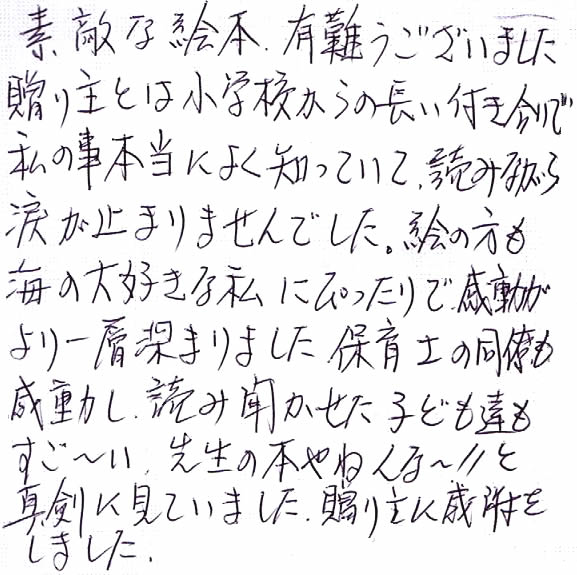 素敵な絵本、有難うございました
贈り主とは小学校からの長い付き合いで
私の事本当によく知っていて、読みながら
涙が止まりませんでした。絵の方も
海の大好きな私にぴったりで感動が
より一層深まりました.保育士の同僚も
感動し、読み聞かせた子ども達も
すご〜い、先生の本やねんな〜!!と
真剣に見ていました、贈り主に感謝を
しました.